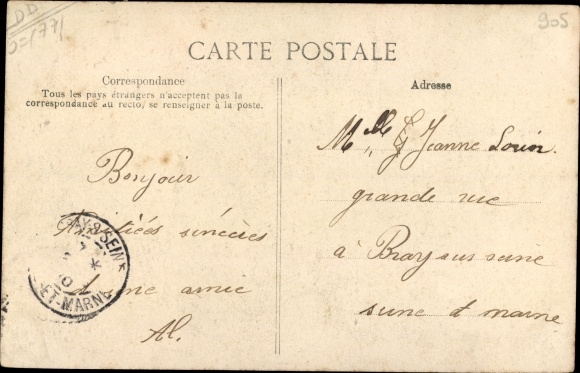 DD
905
CARTE POSTALE
Correspondance
Tous les pays étrangers n'acceptent pas la
correspondance au recto, se renseigner à la poste.
Bonjour
Amitiés sincères
d'une amie
Al.
Adresse
Mlle Jeanne
grande rue
à Bray sur seine
seine et marne
SEINE
ET-MARNE